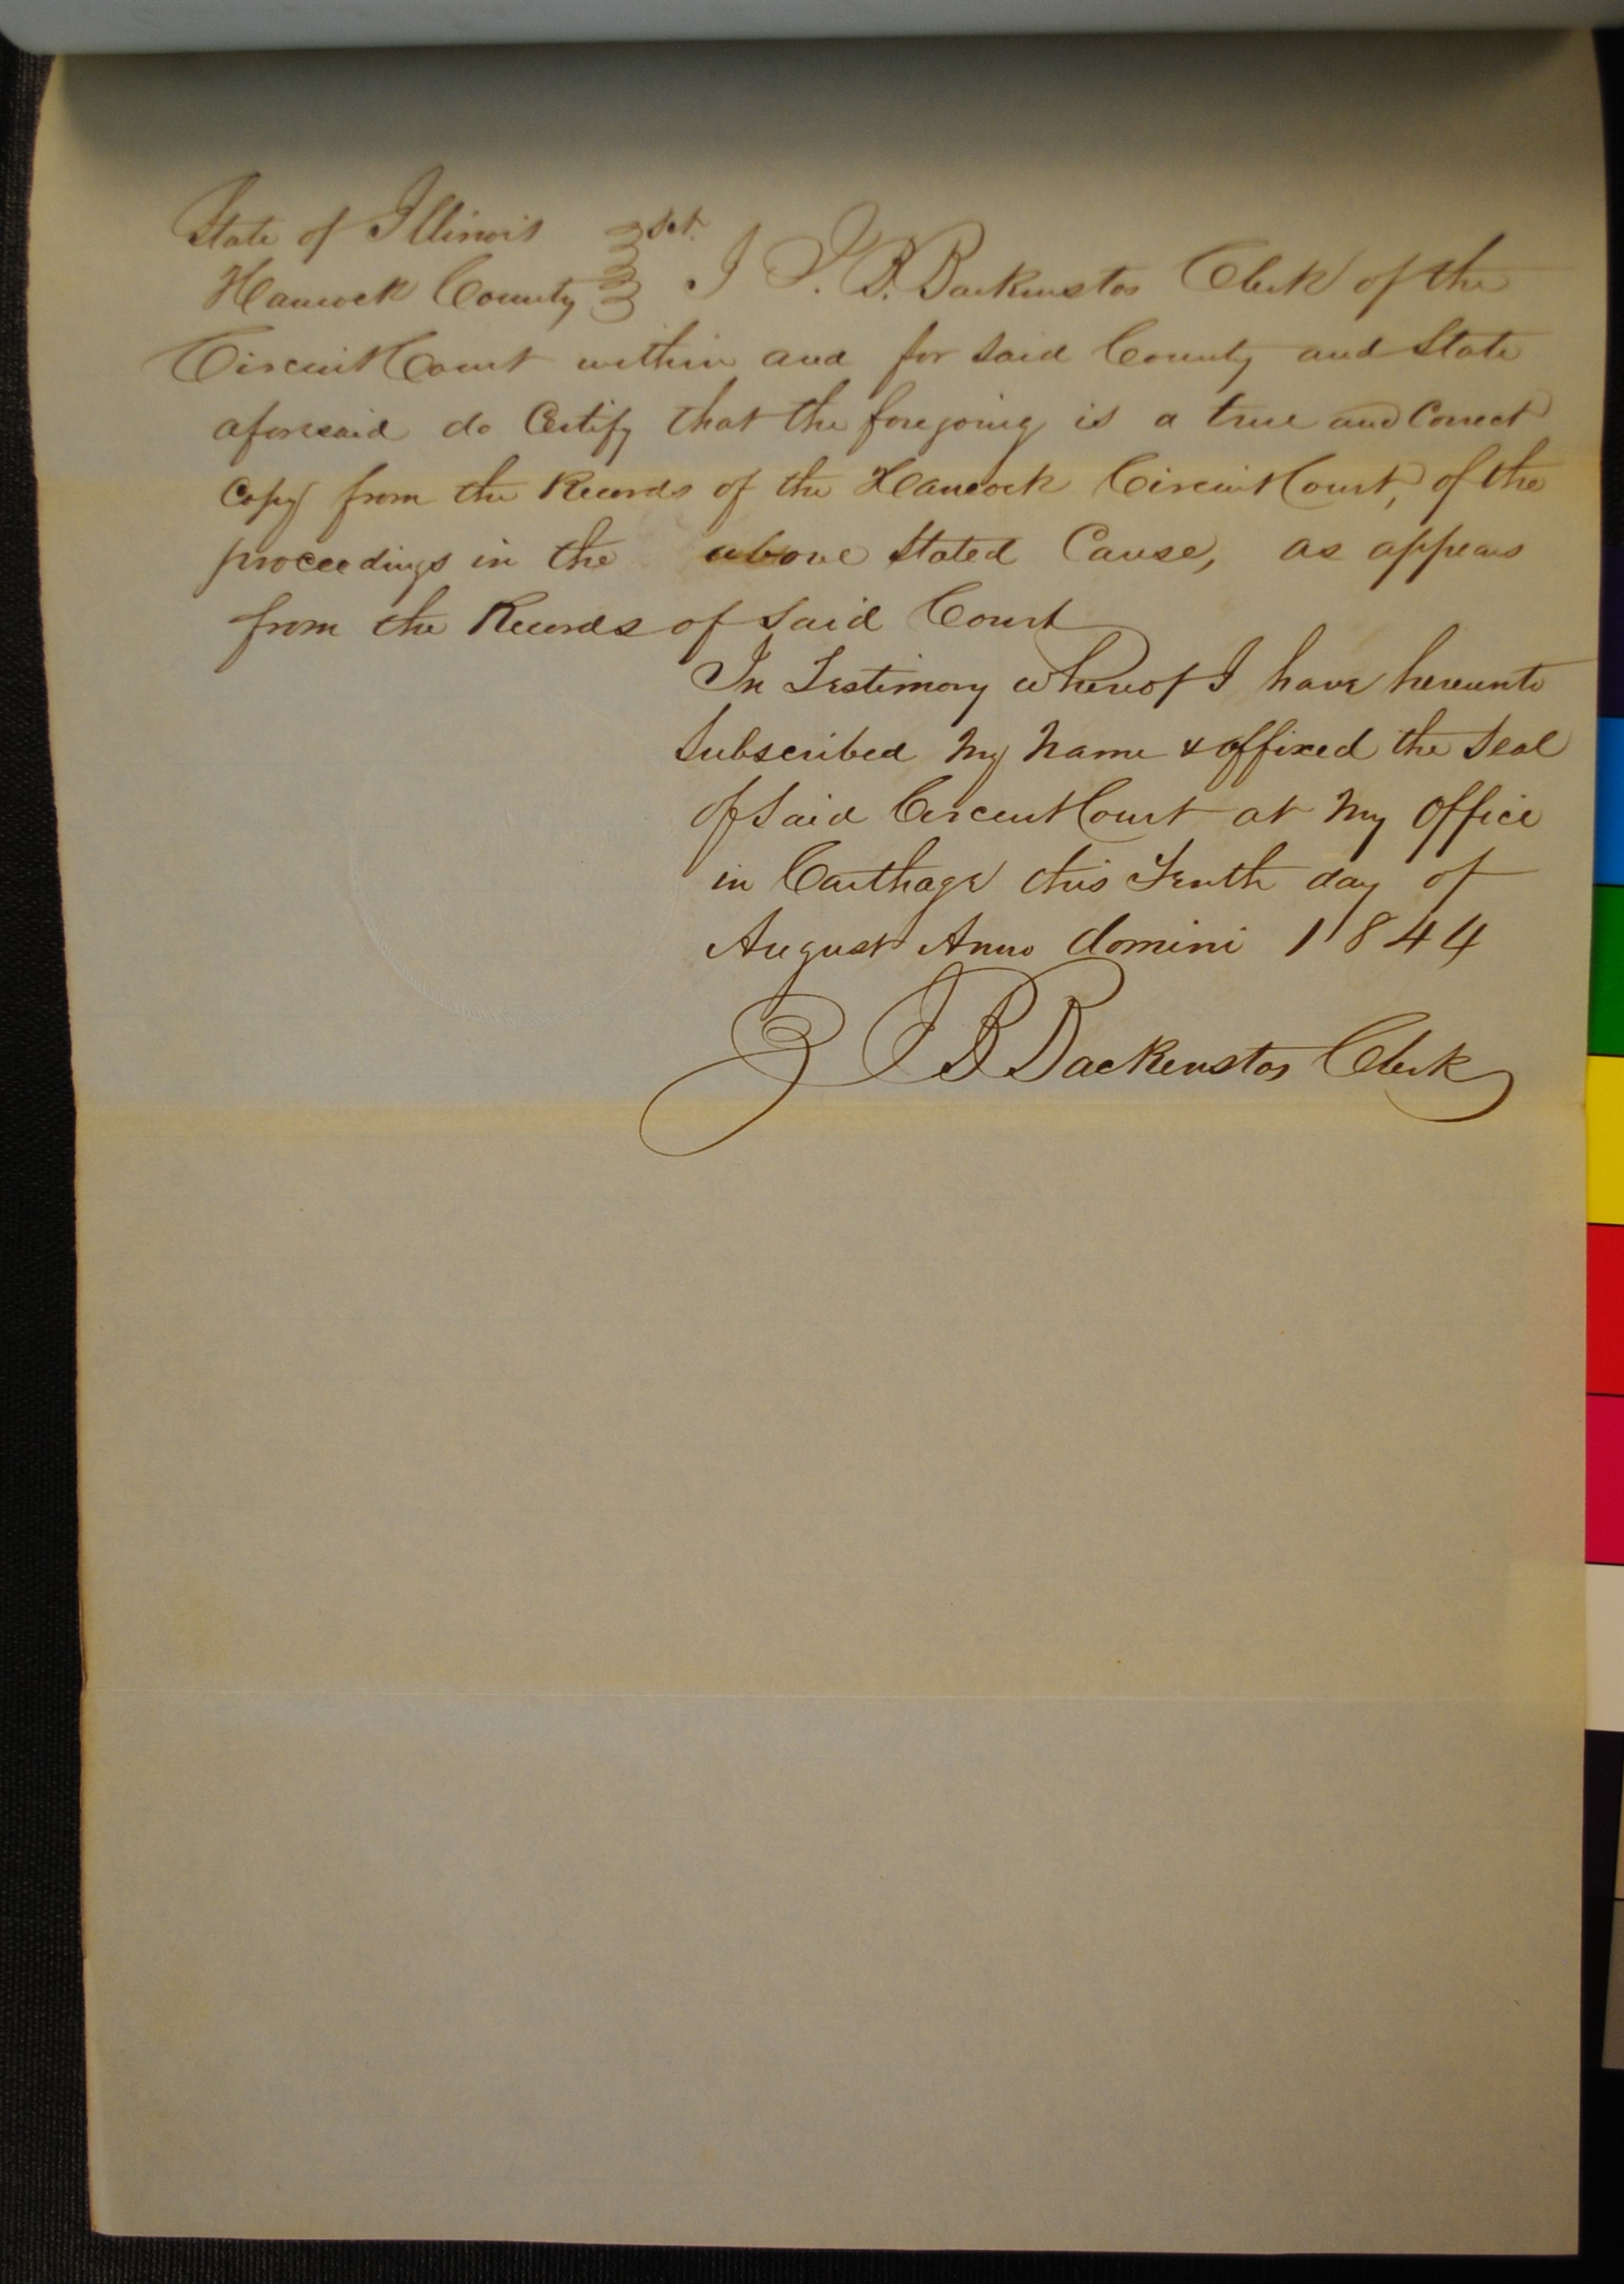 State of Illinois } sct.
Hancock County } I J. B. Backenstos Clerk of the
Circuit Court within and for said County and State
aforesaid do Certify that the foregoing is a true and Correct
Copy from the Records of the Hancock Circuit Court, of the
proceedings in the above Stated Cause, as appears
from the Records of Said Court
In Testimony whereof I have hereunto
Subscribed My Name & affixed the Seal
of Said Circuit Court at My Office
in Carthage this Tenth day of
August Anno domini 1844
J B Backenstos Clerk